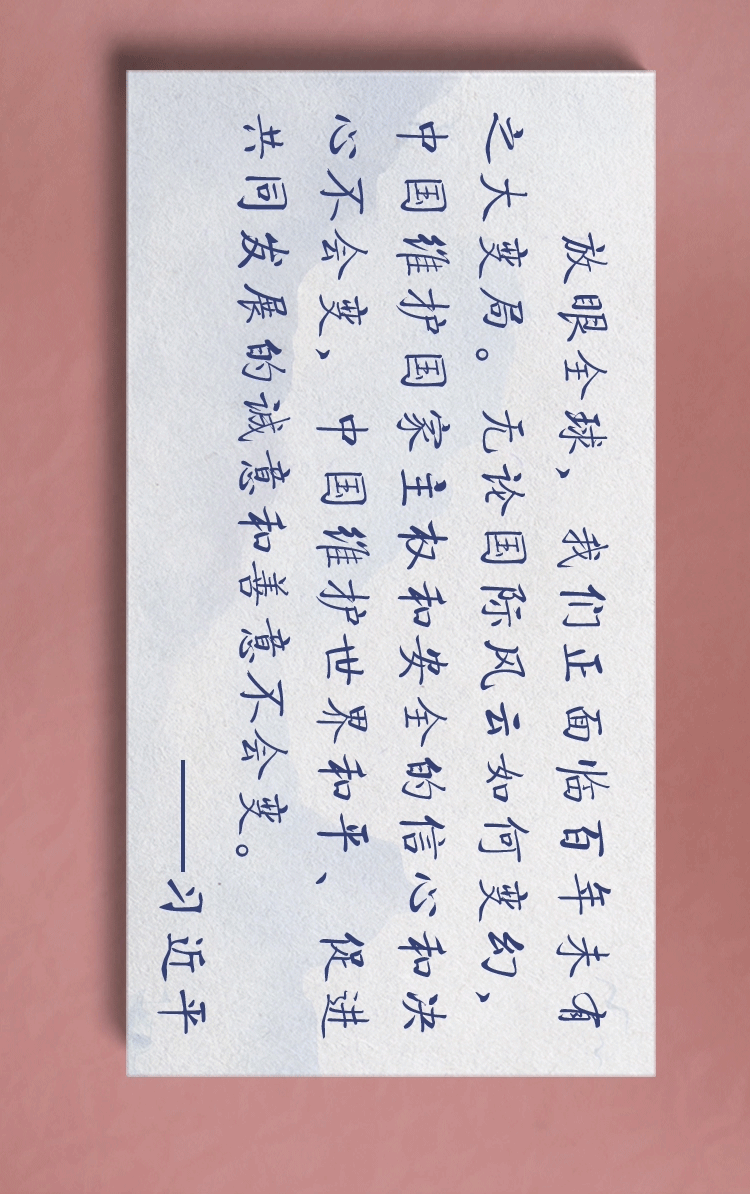 放眼全球，我们正面临百年未有
之大变局。无论国际风云如何变幻，
中国维护国家主权和安全的信心和决
心不会变，中国维护世界和平、促进
共同发展的诚意和善意不会变。
——习近平